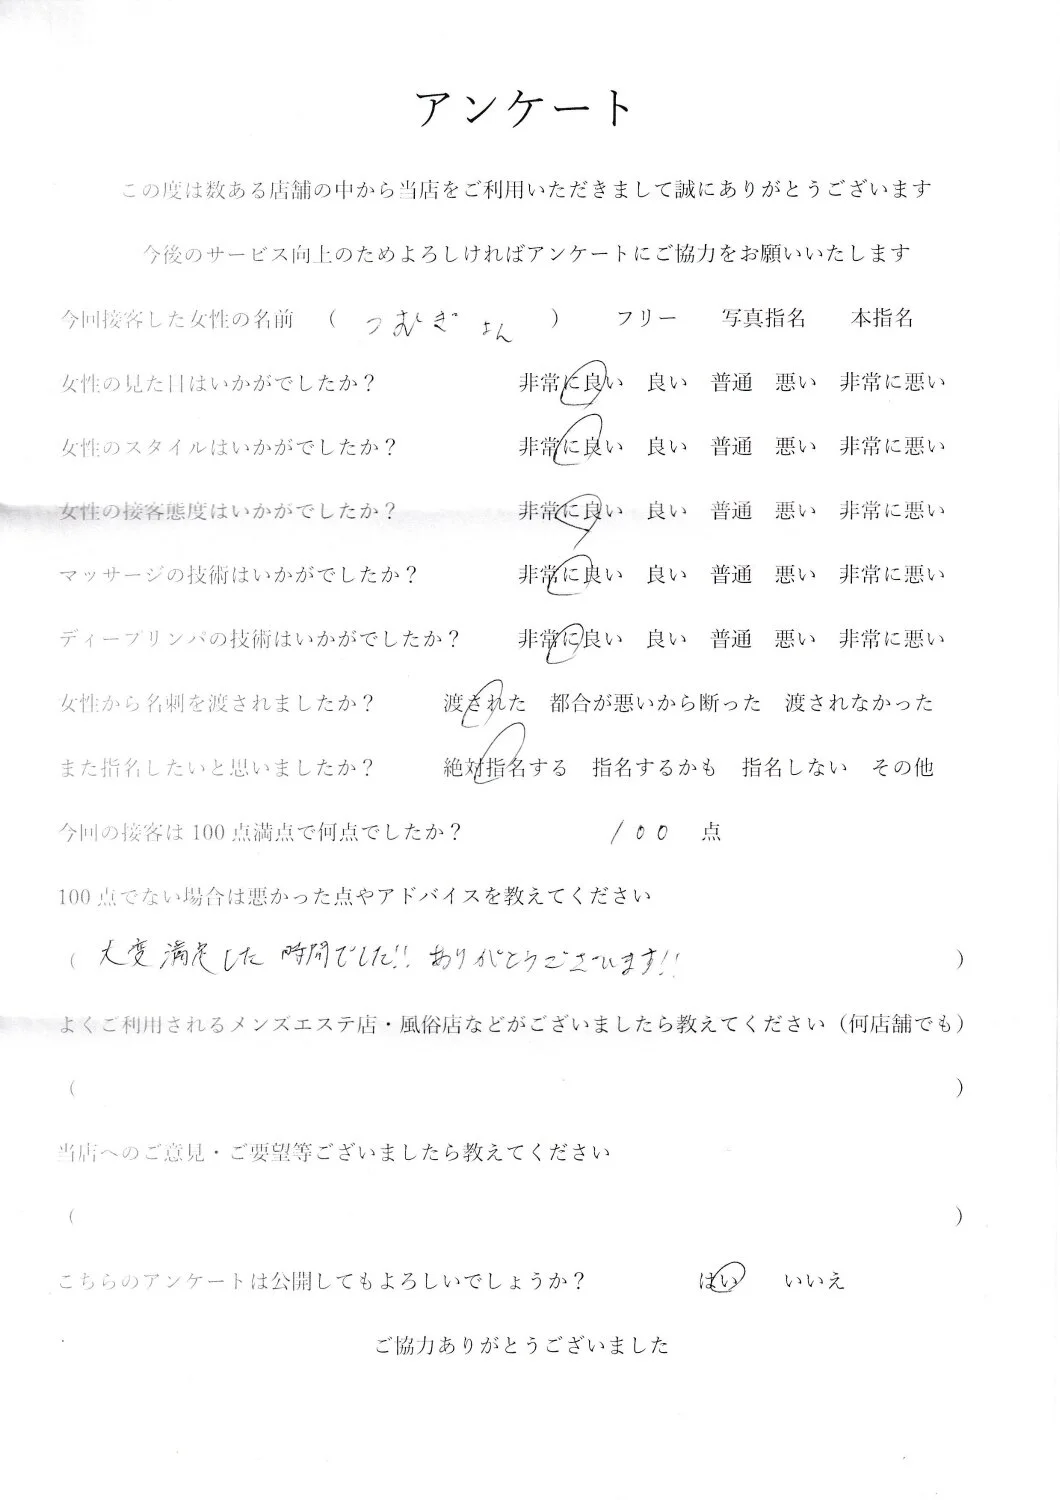 アンケート
この度は数ある店舗の中から当店をご利用いただきまして誠にありがとうございます
今後のサービス向上のためよろしければアンケートにご協力をお願いいたします
今回接客した女性の名前 ( つむぎ さん ) フリー 写真指名 本指名
女性の見た目はいかがでしたか? 非常に良い 良い 普通 悪い 非常に悪い
女性のスタイルはいかがでしたか? 非常に良い 良い 普通 悪い 非常に悪い
女性の接客態度はいかがでしたか? 非常に良い 良い 普通 悪い 非常に悪い
マッサージの技術はいかがでしたか? 非常に良い 良い 普通 悪い 非常に悪い
ディープリンパの技術はいかがでしたか? 非常に良い 良い 普通 悪い 非常に悪い
女性から名刺を渡されましたか? 渡された 都合が悪いから断った 渡されなかった
また指名したいと思いましたか? 絶対指名する 指名するかも 指名しない その他
今回の接客は 100 点満点で何点でしたか? 100 点
100 点でない場合は悪かった点やアドバイスを教えてください
( 大変満足した時間でした!! ありがとうございます!! )
よくご利用されるメンズエステ店・風俗店などがございましたら教えてください(何店舗でも)
( )
当店へのご意見・ご要望等ございましたら教えてください
( )
こちらのアンケートは公開してもよろしいでしょうか? はい いいえ
ご協力ありがとうございました